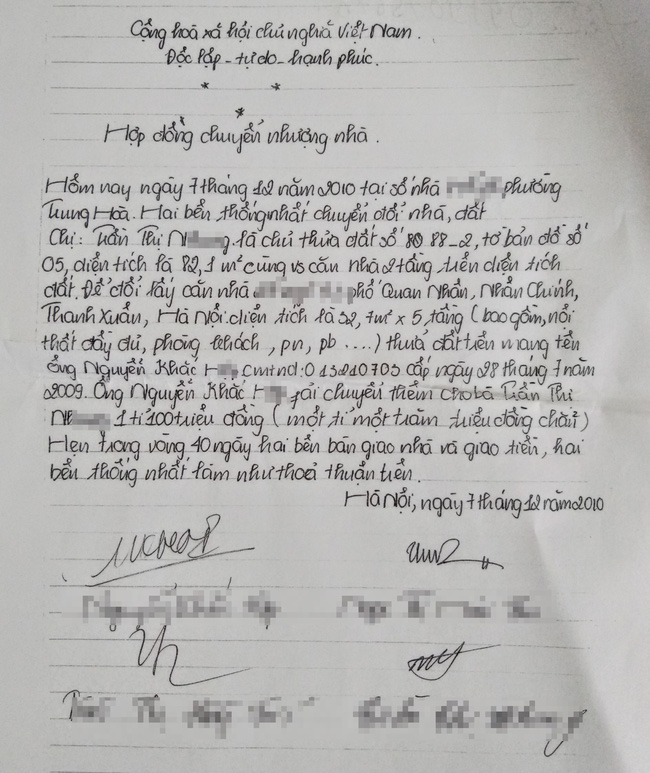 Cộng hoà xã hội chủ nghĩa Việt Nam.
Độc lập - tự do - hạnh phúc.
* *
*
Hợp đồng chuyển nhượng nhà.
Hôm nay ngày 7 tháng 12 năm 2010 tại số nhà phường
Trung Hoà. Hai bên thống nhất chuyển đổi nhà, đất
Chị: Trần Thị N là chủ thửa đất số 88-2, tờ bản đồ số
05, diện tích là 82,1 m² cùng vs căn nhà 2 tầng trên diện tích
đất. Để đổi lấy căn nhà phố Quan Nhân, Nhân Chính,
Thanh Xuân, Hà Nội. diện tích là 32,7m² x 5, tầng (bao gồm, nội
thất đầy đủ, phòng khách, pn, pb ....) thửa đất trên mang tên
ông Nguyễn Khắc H cmtnd: 013210703 cấp ngày 28 tháng 7 năm
2009. Ông Nguyễn Khắc H phải chuyển thêm cho bà Trần Thị
N 1 tỉ 100 triệu đồng (một tỉ một trăm triệu đồng chẵn)
Hẹn trong vòng 40 ngày hai bên bàn giao nhà và giao tiền, hai
bên thống nhất làm như thoả thuận trên.
Hà Nội, ngày 7 tháng 12 năm 2010